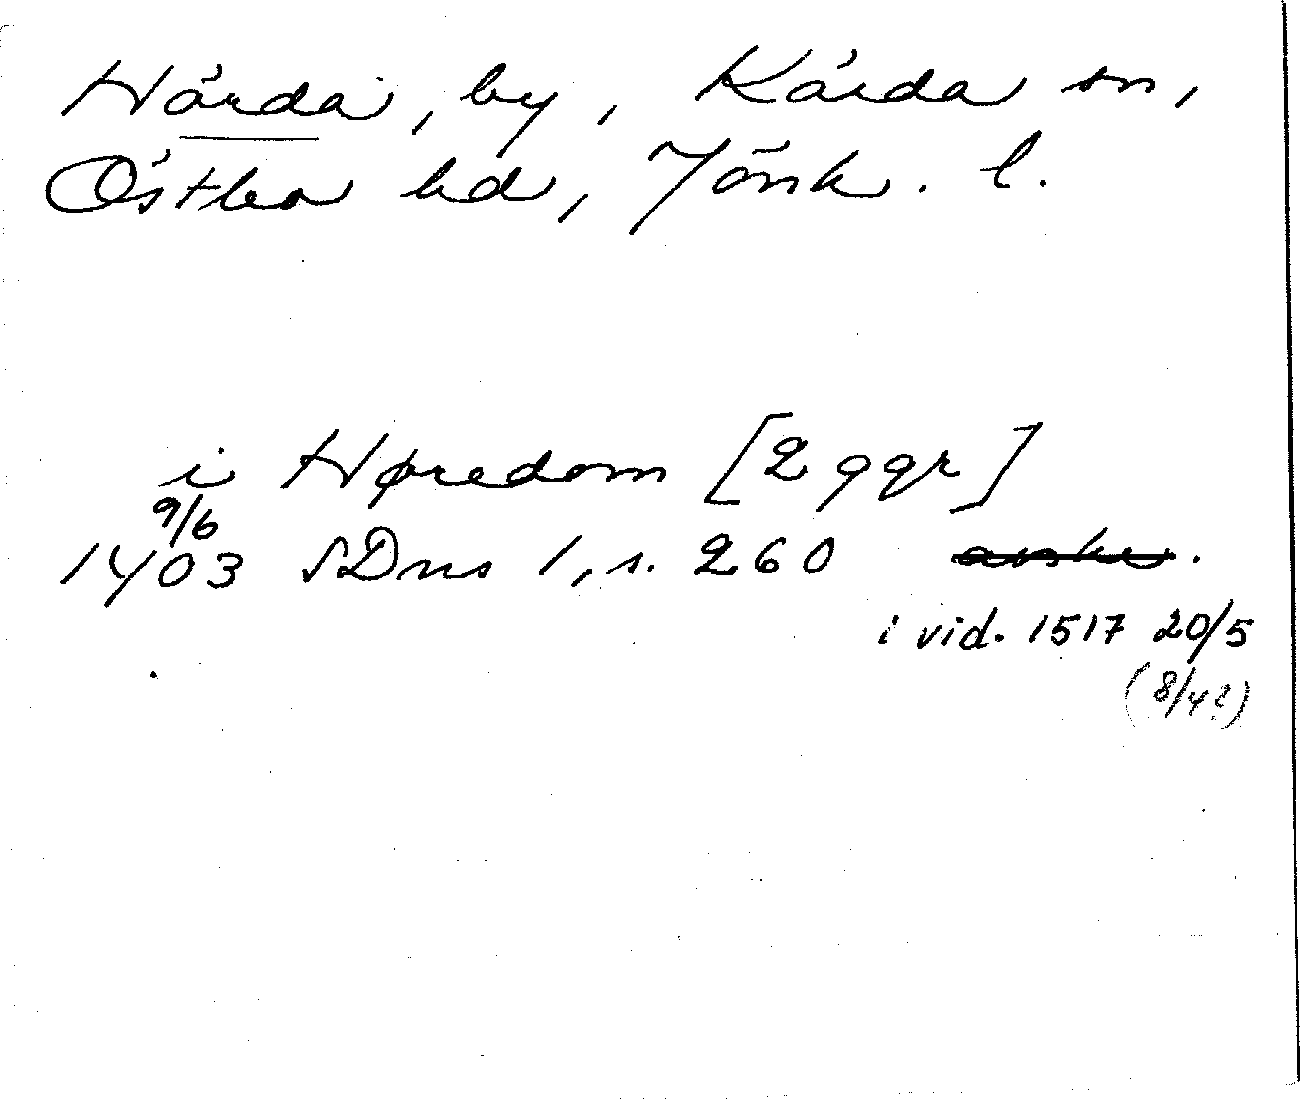 Hårda, by, Kårda sn,
Östbo hd, Jönk. l.
i Høredom [2 ggr]
9/6
1403 SDns 1, s. 260 avskr.
i vid. 1517 20/5
(8/4?)